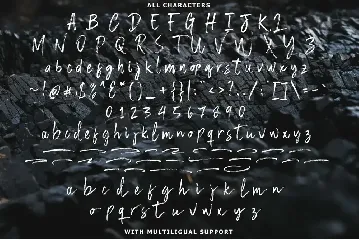 ALL CHARACTERS
A B C D E F G H I J K L
M N O P Q R S T U V W X Y Z
a b c d e f g h i j k l m n o p q r s t u v w x y z
0 1 2 3 4 5 6 7 8 9 0
a b c d e f g h i j k l m n o p q r s t u v w x y z
a b c d e f g h i j k l m n
o p q r s t u v w x y z
WITH MULTILIGUAL SUPPORT